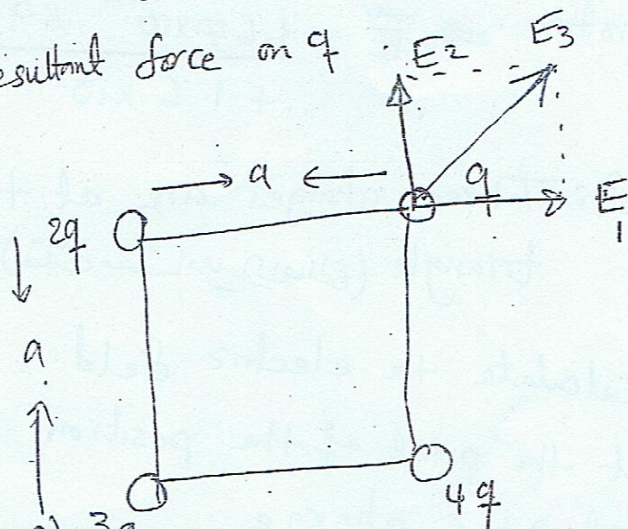 resultant force on q
E2
E3
a
q
E1
2q
a
3q
4q